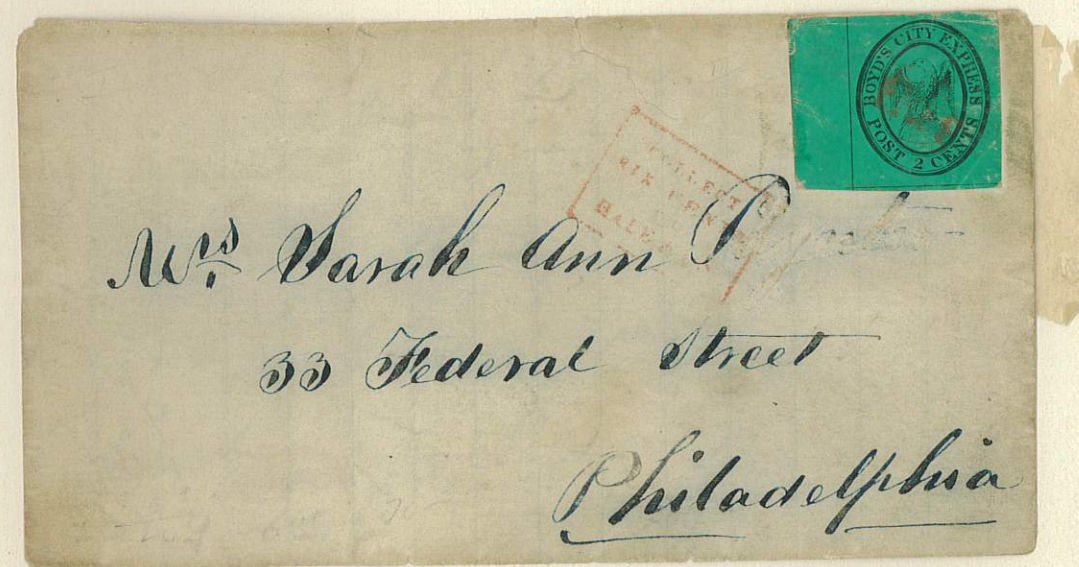 BOYD'S CITY EXPRESS
POST 2 CENTS
COLLECT
SIX CENTS
Mrs Sarah Ann
33 Federal Street
Philadelphia